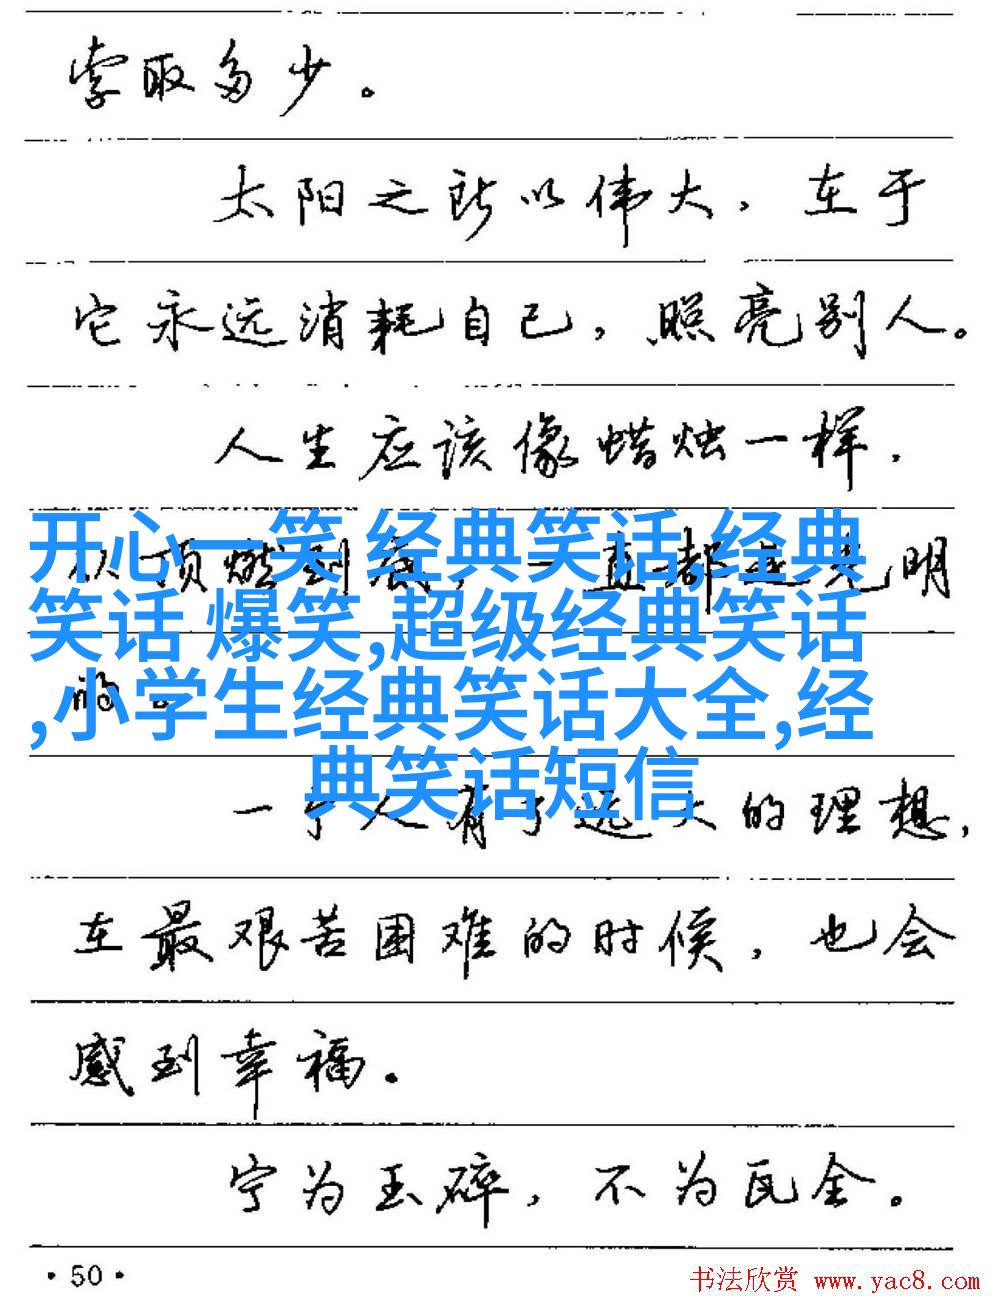 索取多少。
太阳之所以伟大，在于
它永远消耗自己，照亮别人。
人生应该像蜡烛一样，
从顶燃到底，一直都是光明
的。
开心一笑 经典笑话,经典
笑话 爆笑,超级经典笑话
,小学生经典笑话大全,经
典笑话短信
一个人有了远大的理想，
在最艰苦困难的时候，也会
感到幸福。
宁为玉碎，不为瓦全。
·50·
书法欣赏 www.yac8.com